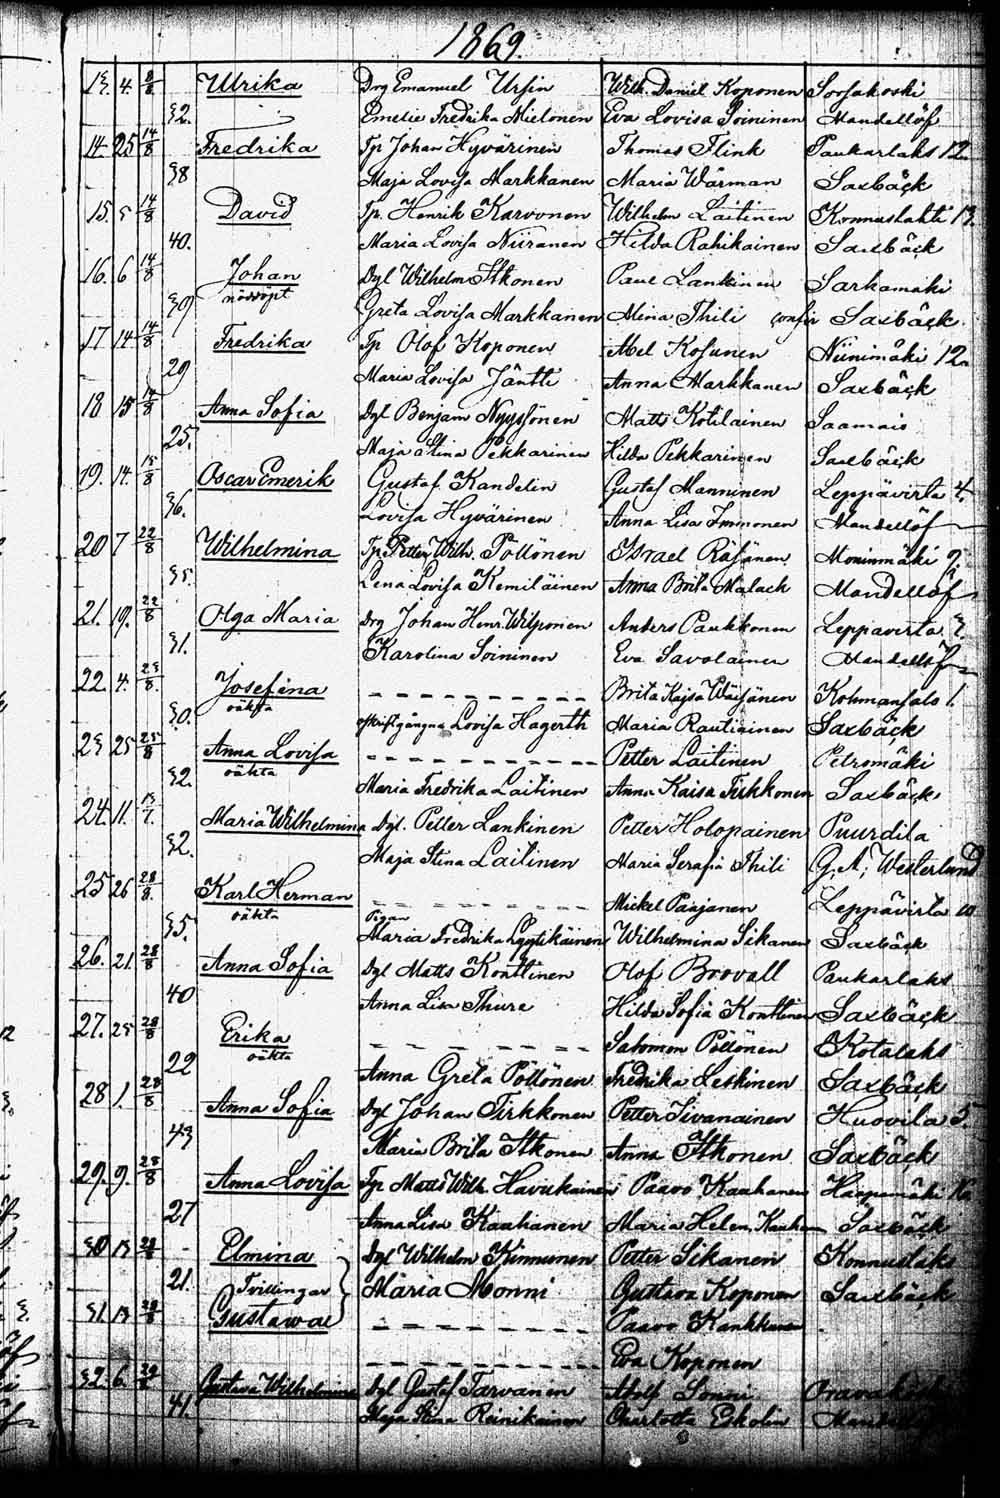 1869.
13. 4. 8/8 Ulrika Drg Emanuel Ursin Wilh. Daniel Koponen Sorsakoski
32. Emelie Fredrika Mielonen Eva Lovisa Soininen Mandellöf
14. 25 14/8 Fredrika Tp Johan Hyvärinen Thomas Flink Paukarlaks 12.
38 Maja Lovisa Markkanen Maria Wärman Saxbäck
15. 5 14/8 David Tp. Henrik Karvonen Wilhelm Laitinen Konnuslahti 13.
40. Maria Lovisa Niiranen Hilda Rahikainen Saxbäck
16. 6 14/8 Johan Dgl Wilhelm Itkonen Paul Lankinen Sarkamäki
nöddöpt
39 Greta Lovisa Markkanen Mina Thili Saxbäck
17 14 14/8 Fredrika Tp Olof Koponen Abel Kosunen Niinimäki 12.
29 Maria Lovisa Jäntti Anna Markkanen Saxbäck
18 15 14/8 Anna Sofia Dgl Benjam Nyyssönen Matts Kotilainen Saamais
25. Maja Stina Pekkarinen Hilda Pekkarinen Saxbäck
19. 14. 15/8 Oscar Emerik Gustaf Kandelin Gustaf Manninen Leppävirta 4.
36. Lovisa Hyvärinen Anna Lisa Immonen Mandellöf
20 7 22/8 Wilhelmina Tp. Petter Wilh. Pöllönen Israel Räsänen Moninmäki
35. Lena Lovisa Kemiläinen Anna Brita Malach Mandellöf
21. 19. 22/8 Olga Maria Drg Johan Henr. Wilponen Anders Paukkonen Leppävirta 3
31. Karolina Soininen Eva Savolainen Mandellöf
22. 4. 25/8 Josefina Brita Kajsa Väisänen Kohmansalo 1.
oäkta
30. Lovisa Hagerth Maria Rautiainen Saxbäck
23 25 25/8 Anna Lovisa Petter Laitinen Petromäki
oäkta
32. Maria Fredrika Laitinen Anna Kaisa Tirkkonen Saxbäck
24. 11. Maria Wilhelmina Dgl. Petter Lankinen Petter Holopainen Puurdila
32. Maja Stina Laitinen Maria Serafia Thili G. A. Westerlund
25 26 28/8. Karl Herman Mickel Paajanen Leppävirta 10
oäkta
35. Pigan Maria Fredrika Lyytikäinen Wilhelmina Sikanen Saxbäck
26. 21. 28/8 Anna Sofia Dgl Matts Konttinen Olof Brovall Paukarlaks
40 Anna Lisa Thure Hilda Sofia Konttinen Saxbäck
27. 25 28/8 Erika Salomon Pöllönen Kotalaks
oäkta
22 Anna Greta Pöllönen Fredrika Leskinen Saxbäck
28 1. 28/8 Anna Sofia Dgl Johan Tirkkonen Petter Iivanainen Huovila 5.
43 Maria Brita Itkonen Anna Itkonen Saxbäck
29. 9. 28/8 Anna Lovisa Tp Matts Wilh. Havukainen Paavo Kauhanen Haapamäki
27 Anna Lisa Kauhanen Maria Helen. Kauhan Saxbäck
30 13 Elmina Dgl Wilhelm Kinnunen Petter Sikanen Konnuslaks
21. Tvillingar Maria Monni Gustava Koponen Saxbäck
31. 13 Gustava Paavo Kankkunen
Eva Koponen
32. 6. Gustava Wilhelmina Dgl Gustaf Tarvanen Adolf Sonni
41. Maja Stina Reinikainen Charlotta Eskolin